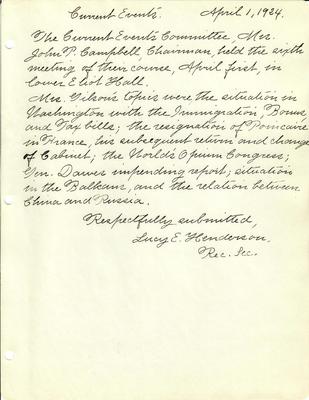 Current Events. April 1, 1924.
The Current Events Committee, Mrs.
John P. Campbell Chairman, held the sixth
meeting of their course, April first, in
lower Eliot Hall.
Mrs. Gilson's topics were the situation in
Washington with the Immigration, Bonus
and Tax bills; the resignation of Poincaire
in France, his subsequent return and change
of Cabinet; the World's Opium Congress;
Gen. Dawes impending report; situation
in the Balkans, and the relation between
China and Russia.
Respectfully submitted,
Lucy E. Henderson,
Rec. Sec.